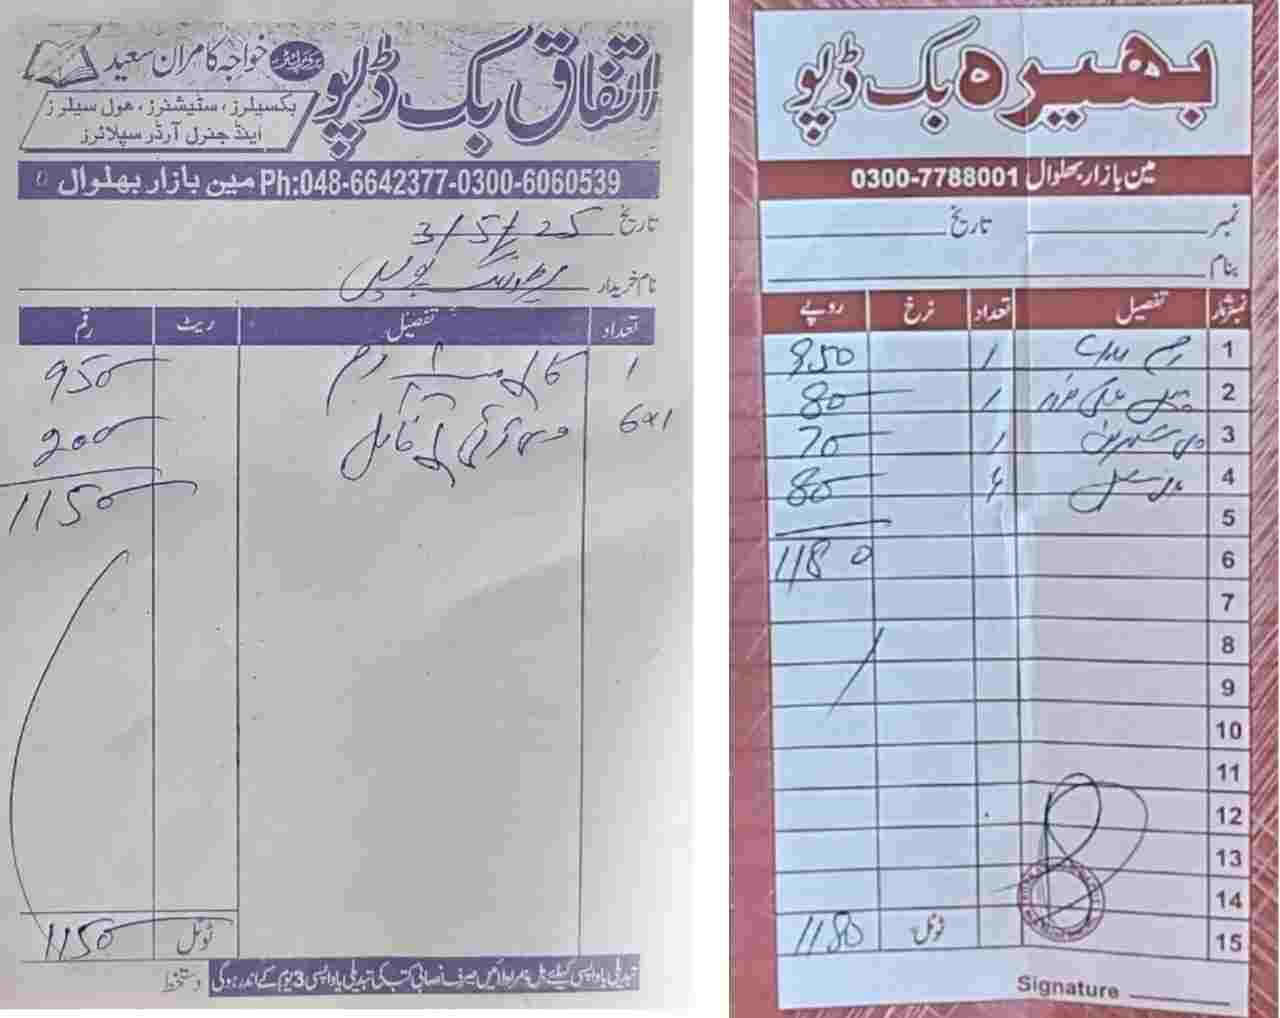 اتفاق بک ڈپو
خواجہ کامران سعید
بکسیلرز، سٹیشنرز، ھول سیلرز
اینڈ جنرل آرڈر سپلائرز
Ph:048-6642377-0300-6060539 مین بازار بھلوال
تاریخ 3/5/25
نام خریدار
تعداد تفصیل ریٹ رقم
1 رم 950
6x1 فائل 200
1150
ٹوٹل 1150
تبدیلی یا واپسی کیلئے بل ہمراہ لائیں صرف نصابی کتب کی تبدیلی یا واپسی 3 یوم کے اندر ہوگی
دستخط
بھیرہ بک ڈپو
مین بازار بھلوال 0300-7788001
نمبر تاریخ
بنام
نمبرشمار تفصیل تعداد نرخ روپے
1 رم 1 950
2 1 80
3 1 70
4 80
5
6 1180
7
8
9
10
11
12
13
14
15 ٹوٹل 1180
Signature